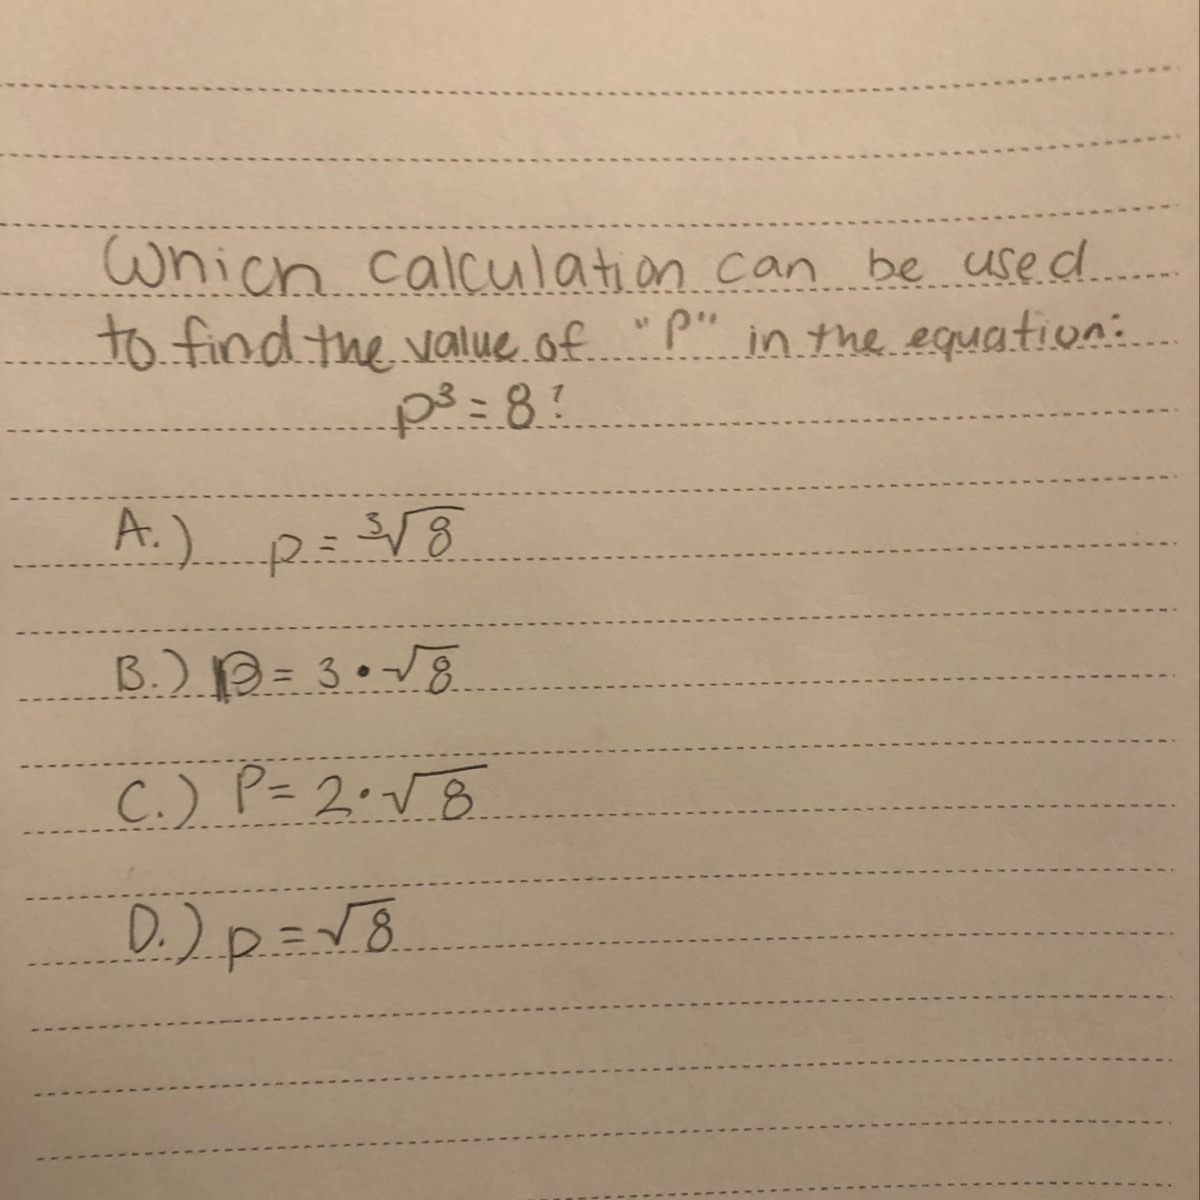 Which calculation can be used
to find the value of "P" in the equation:
p³ = 8?
A.) p = ³√8
B.) p = 3 • √8
C.) P = 2 • √8
D.) p = √8